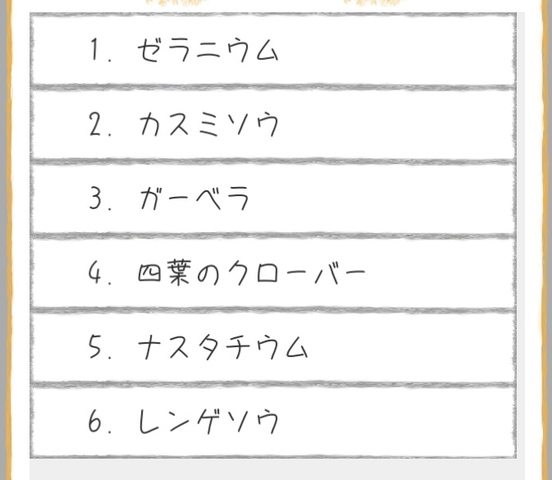 1. ゼラニウム
2. カスミソウ
3. ガーベラ
4. 四葉のクローバー
5. ナスタチウム
6. レンゲソウ